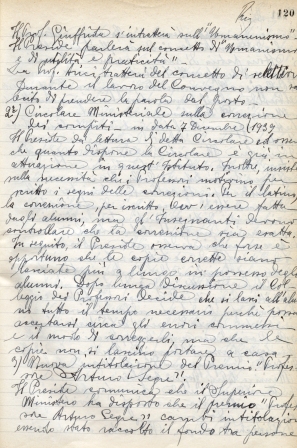 120
Il Prof. Giuffrida s'intratterrà sull'"Umanesimo".
Il Preside parlerà sul concetto di "Umanesimo
e di utilità e praticità".
La Prof. tratterà del concetto di
Durante il lavoro del Convegno non
di prendere la parola dal posto.
2°) Circolare Ministeriale sulla correzione
dei compiti - in data 7 Dicembre 1939
Il Preside dà lettura di detta Circolare ed osser
che quanto dispone la Circolare è già in
attuazione in quest'Istituto. Inoltre, insiste
sulla necessità che i Professori mostrino
i segni delle correzioni. Per il latino,
la correzione, per iscritto, dev'essere fatta
dagli alunni, ma gl'Insegnanti devono
controllare che la correzione sia esatta.
In seguito, il Preside osserva che forse è
opportuno che le copie corrette siano
lasciate più a lungo in possesso degli
alunni. Dopo lunga discussione il Col
legio dei Professori decide che si lasci all'alun
no tutto il tempo necessario perché possa
accertarsi circa gli errori commessi
e il modo di correggerli, ma che le
copie non si lascino portare a casa.
3°) Nuova intitolazione del Premio "Profes
sore Arturo Segre".
Il Preside comunica che il Superiore
Ministero ha disposto che il premio "Profes
sore Arturo Segre" cambi intitolazione
essendo stato raccolto il fondo tra persone